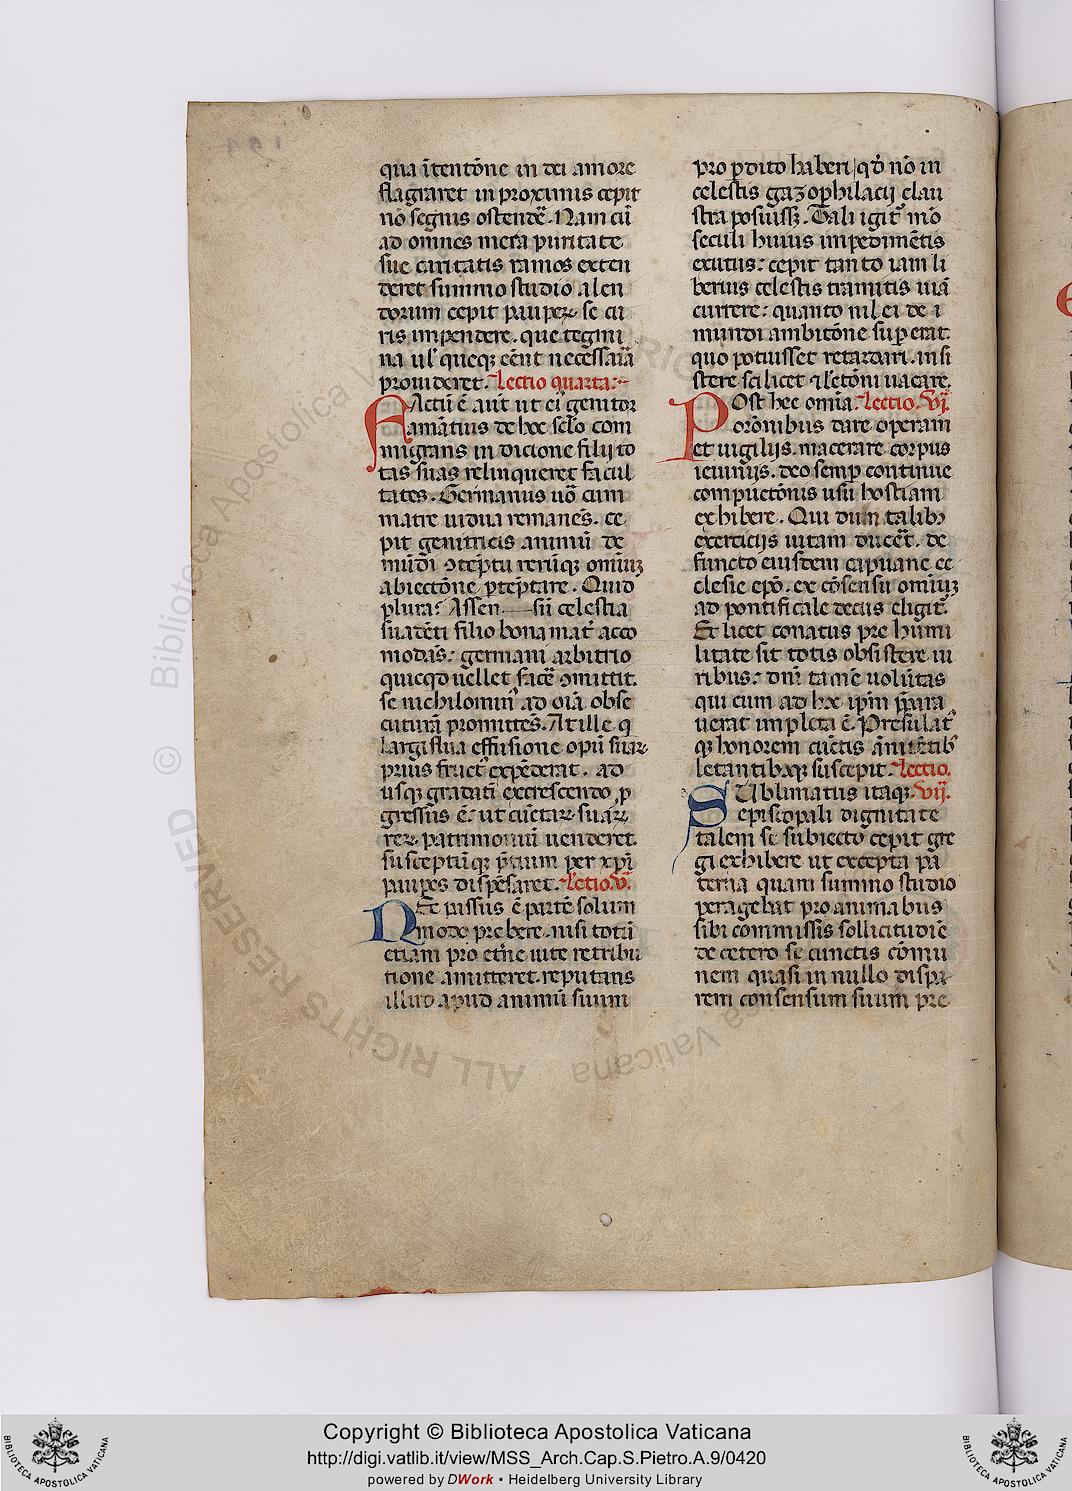 qua ĩtentõne in dei amore
flagraret in proximis cepit
nõ segnis ostendẽ. Nam cũ
ad omnes mera puritate
sue caritatis ramos exten
deret summo studio alen
dorum cepit pauperꝝ se cu
ris impendere. que tegmi
na ul' queqꝫ eẽnt necessaĩa
provideret. Lectio quarta.
FActũ ẽ aut̃ ut ei' genitor
amãtius de hoc sclo com
migrans in dicione filii to
tas suas relinqueret facul
tates. Germanus uõ cum
matre uidua remanẽs. ce
pit genitricis animũ de
mũdi ↄtẽptu rerũqꝫ omĩuꝫ
abiectõne ptẽptare. Quid
plura? Assen sũ celestia
suadẽti filio bona mat̃ acco
modãs: germani arbitrio
quicqd uellet facẽ ↄmittit.
se nichilomin' ad oĩa obse
cuturã promittẽs. At ille q
largiflua effusione opũ suaꝝ
prius fruct' expẽderat. ad
usqꝫ gradatĩ excrescendo p
gressus ẽ: ut cũctaꝝ suaꝝ
reꝝ patrimoniũ uenderet.
susceptũqꝫ p̃tium per xp̃i
pauꝑes dispẽsaret. Lectio. v̄.
NEc passus ẽ partẽ solum
modo prebere. nisi totũ
etiam pro et̃ne uite retribu
tione amitteret. reputans
illud apud animũ suum
pro ꝑdito haberi qd̃ nõ in
celestis gazoꝑhilacij clau
stra posuissꝫ. Tali igit̃ mõ
seculi huius impedimẽtis
exutus: cepit tanto iam li
berius celestis tramitis uiã
currere: quanto nil ei de ĩ
mundi ambitõne suꝑerat.
quo potuisset retardari. insi
stere scilicet ⁊ l'etõni uacare.
POst hec omĩa. Lectio. vi.
orõnibus dare operam
et uigiliis. macerare corpus
ieiuniis. deo semꝑ continue
compũctõnis usũ hostiam
exhibere. Qui dum talibꝫ
exerciciis uitam ducẽt. de
functo eiusdem capuane ec
clesie ep̃o. ex cõsensu omĩuꝫ
ad pontificale decus eligit̃.
Et licet conatus pre humi
litate sit totis obsistere ui
ribus: dñi tamẽ uolũtas
qui eum ad hoc ip̃m p̃para
uerat impleta ẽ. Presulat'
qꝫ honorem cũctis
letantibꝫqꝫ suscepit. Lectio.
SUblimatus itaqꝫ. vii.
episcopali dignitate
talem se subiecto cepit gre
gi exhibere ut excepta pa
terna quam summo studio
peragebat pro animabus
sibi commissis sollicitudĩe
de cetero se cunctis cõmu
nem quasi in nullo dispa
rem consensum suum pre
Copyright © Biblioteca Apostolica Vaticana
http://digi.vatlib.it/view/MSS_Arch.Cap.S.Pietro.A.9/0420
powered by DWork • Heidelberg University Library
BIBLIOTECA APOSTOLICA VATICANA
BIBLIOTECA APOSTOLICA VATICANA
© Biblioteca Apostolica Vaticana
ALL RIGHTS RESERVED